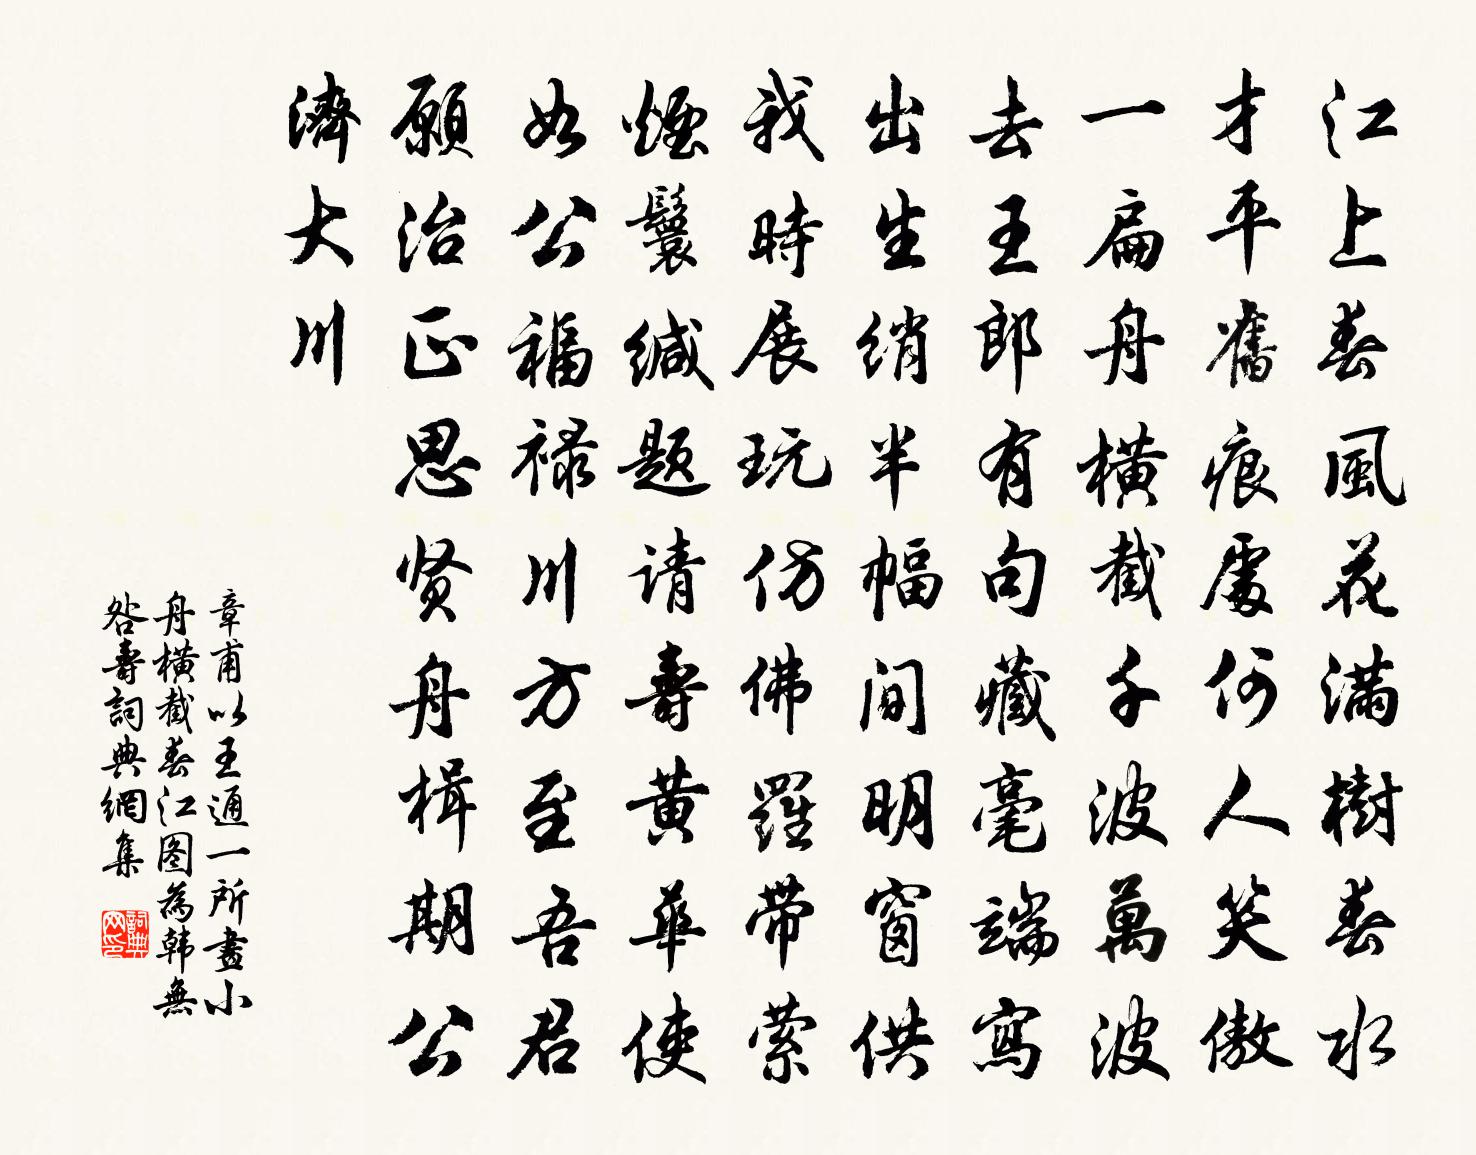 江上春風花滿樹春水
才平舊痕處何人笑傲
一扁舟橫截千波萬波
去王郎有句藏毫端寫
出生绡半幅間明窗供
我時展玩仿佛羅带萦
煙鬟缄题请壽黄華使
如公福禄川方至吾君
願治正思贤舟楫期公
濟大川
章甫以王通一所畫小
舟橫截春江图為韩無
咎壽詞典網集
詞典网印